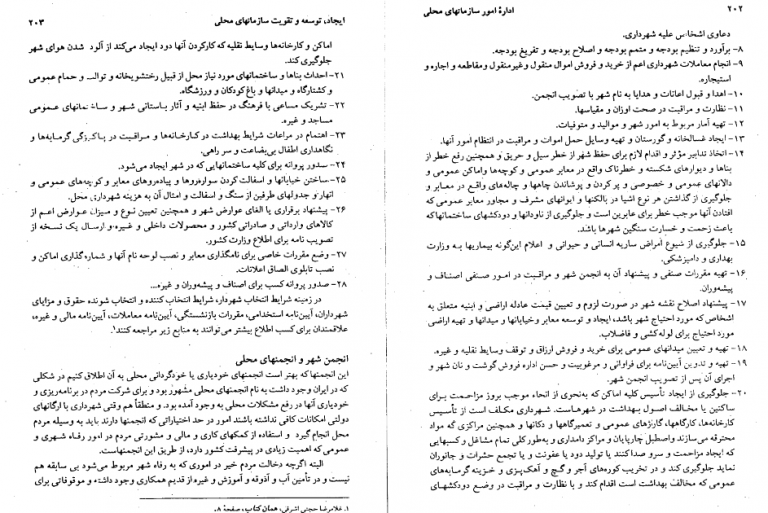 ۲۰۲ ادارهٔ امور سازمانهای محلی
دعاوی اشخاص علیه شهرداری.
۸- برآورد و تنظیم بودجه و متمم بودجه و اصلاح بودجه و تفریغ بودجه.
۹- انجام معاملات شهرداری اعم از خرید و فروش اموال منقول وغیرمنقول ومقاطعه و اجاره و
استیجاره.
۱۰- اهدا و قبول اعانات و هدایا به نام شهر با تصویب انجمن.
۱۱- نظارت و مراقبت در صحت اوزان و مقیاسها.
۱۲- تهیه آمار مربوط به امور شهر و موالید و متوفیات.
۱۳- ایجاد غسالخانه و گورستان و تهیه وسایل حمل اموات و مراقبت در انتظام امور آنها.
۱۴- اتخاذ تدابیر مؤثر و اقدام لازم برای حفظ شهر از خطر سیل و حریق و همچنین رفع خطر از
بناها و دیوارهای شکسته و خطرناک واقع در معابر عمومی و کوچه‌ها واماکن عمومی و
دالانهای عمومی و خصوصی و پر کردن و پوشاندن چاهها و چاله‌های واقع در معابر و
جلوگیری از گذاشتن هر نوع اشیا در بالکنها و ایوانهای مشرف و مجاور معابر عمومی که
افتادن آنها موجب خطر برای عابرین است و جلوگیری از ناودانها و دودکشهای ساختمانهاکه
باعث زحمت و خسارت سنگین شهرها باشد.
۱۵- جلوگیری از شیوع امراض ساریه انسانی و حیوانی و اعلام این‌گونه بیماریها به وزارت
بهداری و دامپزشکی.
۱۶- تهیه مقررات صنفی و پیشنهاد آن به انجمن شهر و مراقبت در امور صنفی اصناف و
پیشه‌وران.
۱۷- پیشنهاد اصلاح نقشه شهر در صورت لزوم و تعیین قیمت عادله اراضی و ابنیه متعلق به
اشخاص که مورد احتیاج شهر باشد، ایجاد و توسعه معابر وخیابانها و میدانها و تهیه اراضی
مورد احتیاج برای لوله‌کشی و فاضلاب.
۱۸- تهیه و تعیین میدانهای عمومی برای خرید و فروش ارزاق و توقف وسایط نقلیه و غیره.
۱۹- تهیه و تدوین آیین‌نامه برای فراوانی و مرغوبیت و حسن اداره فروش گوشت و نان شهر و
اجرای آن پس از تصویب انجمن شهر.
۲۰- جلوگیری از ایجاد تأسیس کلیه اماکن که به‌نحوی از انحاء موجب بروز مزاحمت برای
ساکنین یا مخالف اصول بهداشت در شهرهاست. شهرداری مکلف است از تأسیس
کارخانه‌ها، کارگاهها، گاراژهای عمومی و تعمیرگاهها و دکانها و همچنین مراکزی که مواد
محترقه می‌سازند واصطبل چارپایان و مراکز دامداری و به‌طور کلی تمام مشاغل و کسبهایی
که ایجاد مزاحمت و سرو صدا کنند یا تولید دود یا عفونت و یا تجمع حشرات و جانوران
نماید جلوگیری کند و در تخریب کوره‌های آجر و گچ و آهک‌پزی و خزینه گرمابه‌های
عمومی که مخالف بهداشت است اقدام کند و با نظارت و مراقبت در وضع دودکشهای
ایجاد، توسعه و تقویت سازمانهای محلی ۲۰۳
اماکن و کارخانه‌ها وسایط نقلیه که کارکردن آنها دود ایجاد می‌کند از آلود شدن هوای شهر
جلوگیری کند.
۲۱- احداث بناها و ساختمانهای مورد نیاز محل از قبیل رختشویخانه و توالت و حمام عمومی
و کشتارگاه و میدانها و باغ کودکان و ورزشگاه.
۲۲- تشریک مساعی با فرهنگ در حفظ ابنیه و آثار باستانی شهر و ساختمانهای عمومی
مساجد و غیره.
۲۳- اهتمام در مراعات شرایط بهداشت در کارخانه‌ها و مراقبت در پاکیزگی گرمابه‌ها و
نگاهداری اطفال بی‌بضاعت و سر راهی.
۲۴- صدور پروانه برای کلیه ساختمانهایی که در شهر ایجاد می‌شود.
۲۵- ساختن خیابانها و اسفالت کردن سواره‌روها و پیاده‌روهای معابر و کوچه‌های عمومی و
انهار و جدولهای طرفین از سنگ و اسفالت و امثال آن به هزینه شهرداری محل.
۲۶- پیشنهاد برقراری یا الغای عوارض شهر و همچنین تعیین نوع و میزان عوارض اعم از
کالاهای وارداتی و صادراتی کشور و محصولات داخلی و غیره و ارسال یک نسخه از
تصویب نامه برای اطلاع وزارت کشور.
۲۷- وضع مقررات خاصی برای نامگذاری معابر و نصب لوحه نام آنها و شماره‌گذاری اماکن و
نصب تابلوی الصاق اعلانات.
۲۸- صدور پروانه کسب برای اصناف و پیشه‌وران و غیره...
در زمینه شرایط انتخاب شهردار، شرایط انتخاب کننده و انتخاب شونده حقوق و مزایای
شهرداران، آیین‌نامه استخدامی، مقررات بازنشستگی، آیین‌نامه معاملات، آیین‌نامه مالی و غیره،
علاقمندان برای کسب اطلاع بیشتر می‌توانند به منابع زیر مراجعه کنند.۱
انجمن شهر و انجمنهای محلی
این انجمنها که بهتر است انجمنهای خودیاری یا خودگردانی محلی به آن اطلاق کنیم در شکلی
که در ایران وجود داشت به نام انجمنهای محلی مشهور بود و برای شرکت مردم در برنامه‌ریزی و
خودیاری آنها در رفع مشکلات محلی به وجود آمده بود. و منطقاً هم وقتی شهرداری با ارگانهای
دولتی امکانات کافی نداشته باشند امور در حد اختیاراتی که انجمنها دارند باید به وسیله مردم
محل انجام گیرد و استفاده از کمکهای کاری و مالی و مشورتی مردم در امور رفاه شهری و
عمومی که اهمیت زیادی در پیشرفت کشور دارد، از طریق این انجمنهاست.
البته اگرچه دخالت مردم خیر در اموری که به رفاه شهر مربوط می‌شود بی سابقه هم
نیست و در تأمین آب و آذوقه و آموزش و غیره از قدیم همکاری وجود داشته و موقوفاتی برای
۱. غلامرضا حجتی اشرفی، همان کتاب، صفحهٔ ۸.